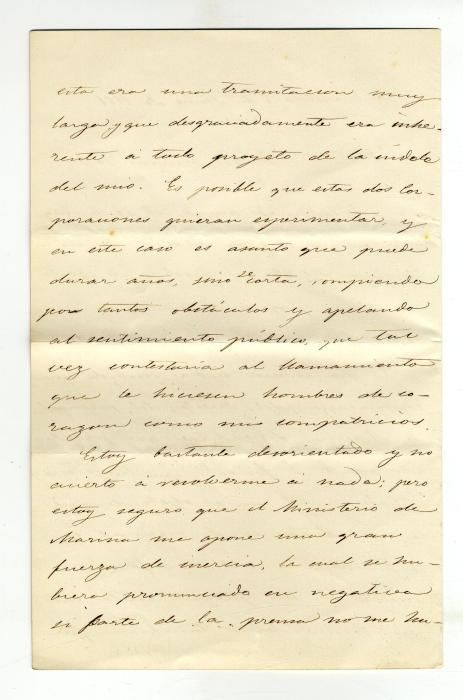 esta era una tramitacion muy
larga, y que desgraciadamente era inhe-
rente á todo proyecto de la índole
del mio. Es posible que estas dos Cor-
poraciones quieran experimentar, y
en este caso es asunto que puede
durar años, sino se corta, rompiendo
por tantos obstáculos y apelando
al sentimiento público, que tal
vez contestaría al llamamiento
que le hiciesen hombres de co-
razon como mis compatricios.
Estoy bastante desorientado y no
acierto á resolverme á nada; pero
estoy seguro que el Ministerio de
Marina me opone una gran
fuerza de inercia, la cual se hu-
biera pronunciado en negativa
si parte de la prensa no me hu-